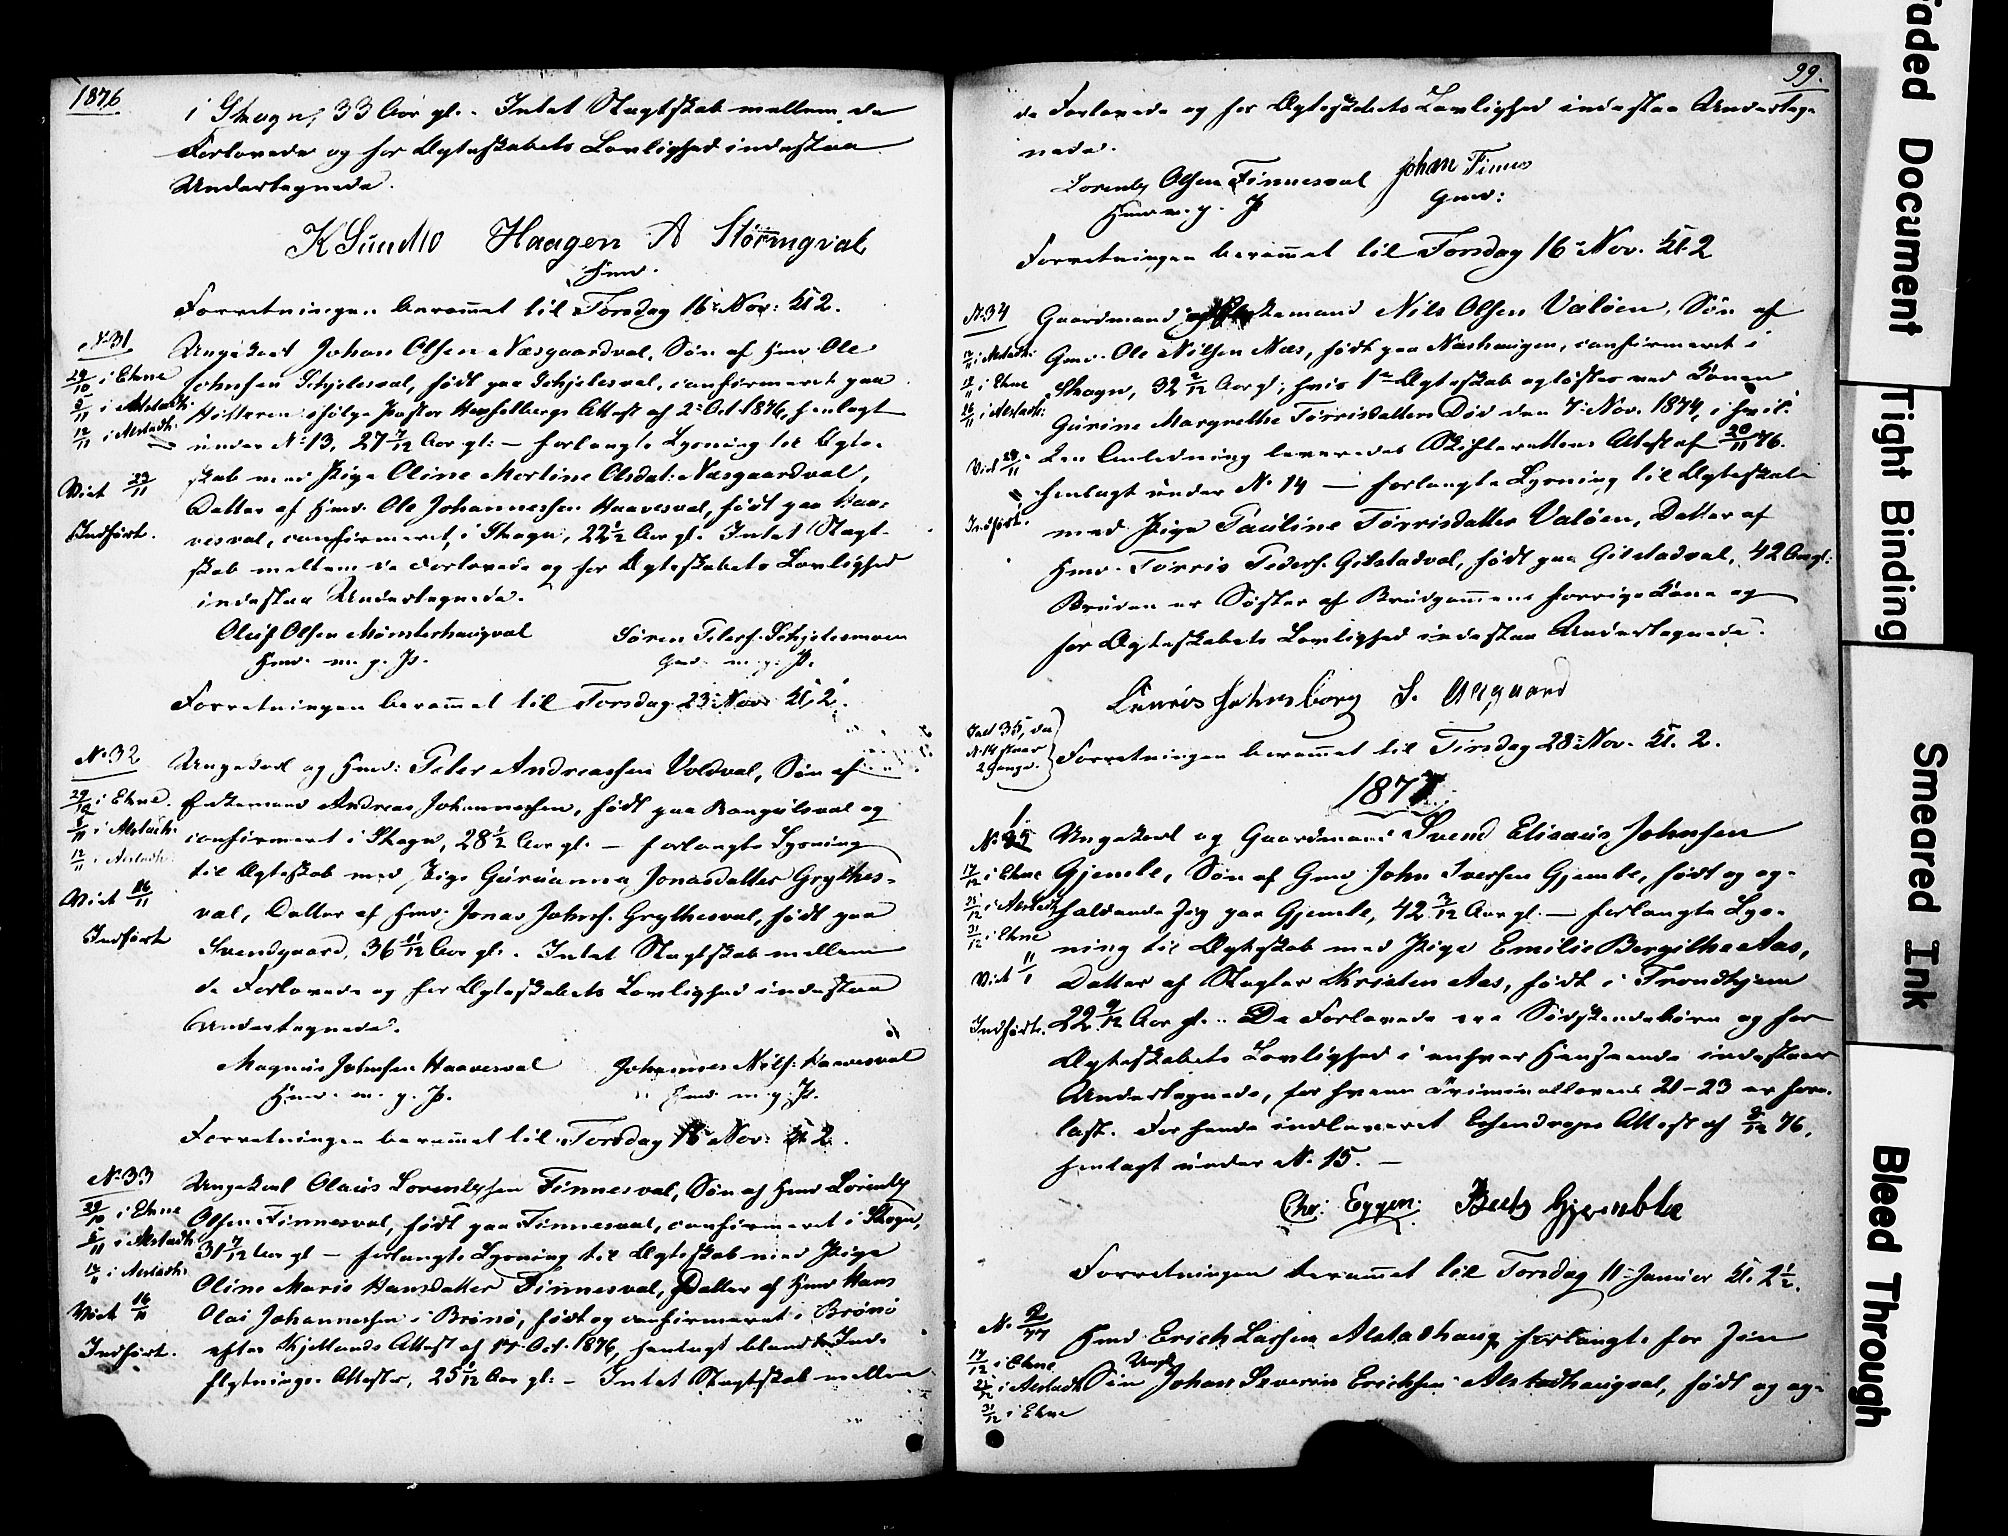 1876
i Skogn, 33 Aar gl. Intet Slægtskab mellem de
Forlovede og for Ægteskabets Lovlighed indestaa
Undertegnede.
K Sundlo Haagen A Störmgval
Hmd.
Forretningen berammet til Torsdag 16 Nov: Kl 2.
No 31
29/10 i Ekne
5/11 i Alstadh:
12/11 i Alstadh:
Viet 23/11
Indført.
Ungekarl Johan Olsen Næsgaardval, Søn af Hmd. Ole
Johnsen Schjelesval, født paa Schjelesval, confirmeret paa
Hitteren ifølge Pastor Hesselbergs Attest af 2 Oct. 1876, henlagt
under No 13, 27 /12 Aar gl: – forlangte Lysning til Ægte-
skab med Pige Oline Martine Olsdat: Næsgaardval,
Datter af Hmd. Ole Johannessen Haavesval, født paa Haa-
vesval, confirmeret i Skogn, 22 1/2 Aar gl. Intet Slægt-
skab mellem de Forlovede og for Ægteskabets Lovlighed
indestaa Undertegnede.
Oluf Olsen Mønsterhaugval Søren Peters: Schjelesmoen
Hmd. m. p. P. Gmd. m. p. P.
Forretningen berammet til Torsdag 23 Nov. Kl. 2.
No 32
29/10 i Ekne.
5/11 i Alstadh:
12/11 i Alstadh:
Viet 16/11
Indført
Ungekarl og Hmd: Peter Andreassen Voldval, Søn af
Enkemand Andreas Johannessen, født paa Rangulsval og
confirmeret i Skogn, 28 1/2 Aar gl. – forlangte Lysning
til Ægteskab med Pige Guruanna Jonasdatter Grythes-
val, Datter af Hmd. Jonas Johns. Grythesval, født paa
Svendgaard, 36 11/12 Aar gl. Intet Slægtskab mellem
de Forlovede og for Ægteskabets Lovlighed indestaa
Undertegnede.
Magnus Johnsen Haavesval Johannes Nils: Haavesval
Hmd. m. p. P. Hmd. m. p. P.
Forretningen berammet til Torsdag 16 Nov: Kl 2.
No 33
29/10 i Ekne
5/11 i Alstadh:
12/11 i Alstadh:
Viet 16/11
Indført.
Ungekarl Olaus Lorentssen Finnesval, Søn af Hmd Lorents
Olsen Finnesval, født paa Finnesval, confirmeret i Skogn,
31 7/12 Aar gl – forlangte Lysning til Ægteskab med Pige
Oline Marie Hansdatter Finnesval, Datter af Hmd Hans
Olai Johannessen i Brønø, født og confirmeret i Brønø
efter Kjellands Attest af 17 Oct. 1876, henlagt blandt Ind-
flytnings Attester, 25 /12 Aar gl: – Intet Slægtskab mellem
99.
de Forlovede og for Ægteskabets Lovlighed indestaa Underteg-
nede.
Lorents Olsen Finnesval Johan Finnes
Hmd m. p. P Gmd:
Forretningen berammet til Torsdag 16 Nov. Kl. 2
No 34
12/11 i Alstadh:
19/11 i Ekne
26/11 i Alstadh:
Viet 28/11
Indført.
Gaardmand og Enkemand Nils Olsen Valøen, Søn af
Gmd. Ole Nilsen Næs, født paa Næshaugen, confirmeret i
Skogn, 32 2/12 Aar gl; hvis 1ste Ægteskab opløstes ved Konen
Gurine Margrethe Tørrisdatters Død den 7 Nov. 1874, i hvil-
ken Anledning leveredes Skifterettens Attest af 20/11 76.
henlagt under No 14 – forlangte Lysning til Ægteskab
med Pige Pauline Tørrisdatter Valøen, Datter af
Hmd. Tørris Peders. Gilstadval, født paa Gilstadval, 42 Aar gl:
Bruden er Søster af Brudgommens forrige Kone og
for Ægteskabets Lovlighed indestaa Undertegnede.
Laurits Johnsborg S. Aagaard
Skal 35, da
No 14 staar
2 Gange.
Forretningen berammet til Tirsdag 28 Nov. Kl. 2.
1877.
No 1
17/12 i Ekne
25/12 i Alstadh
31/12 i Ekne
Viet 11/1
Indført.
Ungekarl og Gaardmand Svend Elisæus Johnsen
Gjemble, Søn af Gmd John Iversen Gjemble, født og op-
holdende sig paa Gjemble, 42 3/12 Aar gl. – forlangte Lys-
ning til Ægteskab med Pige Emilie Bergithe Aas,
Datter af Slagter Kristen Aas, født i Trondhjem
22 9/12 Aar gl. De Forlovede ere Sødskendebørn og for
Ægteskabets Lovlighed i enhver Henseende indestaar
Undertegnede, for hvem Criminallovens 21–23 er fore-
læst. For hende indleveret Essendrops Attest af /12 76,
henlagt under No 15. –
Chr: Eggen: Bertz Gjemble
Forretningen berammet til Torsdag 11 Januar Kl. 2 1/2.
No 2/77
17/12 i Ekne
25/12 i Alstadh
31/12 i Ekne
Hmd Erich Larsen Alstadhaug forlangte for sin
Søn Ungk Johan Severin Ericksen Alstadhaugval, født og op-
Faded Document
Tight Binding
Smeared Ink
Bleed Through